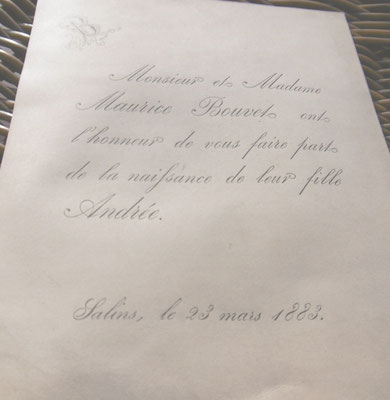 Monsieur et Madame
Maurice Bouvet ont
l'honneur de vous faire part
de la naiſsance de leur fille
Andrée.
Salins, le 23 mars 1883.